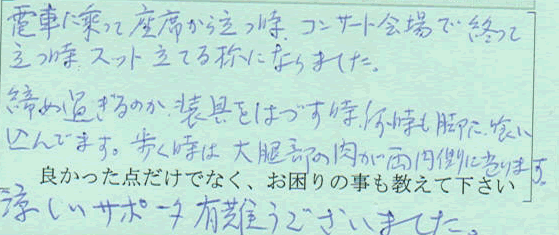 電車に乗って座席から立つ時、コンサート会場で終って
立つ時スット立てる様になりました。
締め過ぎるのか装具をはづす時、何時も脚に喰い
込んでます。歩く時は大腿部の肉が両内側に寄ります。
良かった点だけでなく、お困りの事も教えて下さい
涼しいサポータ有難うございました。